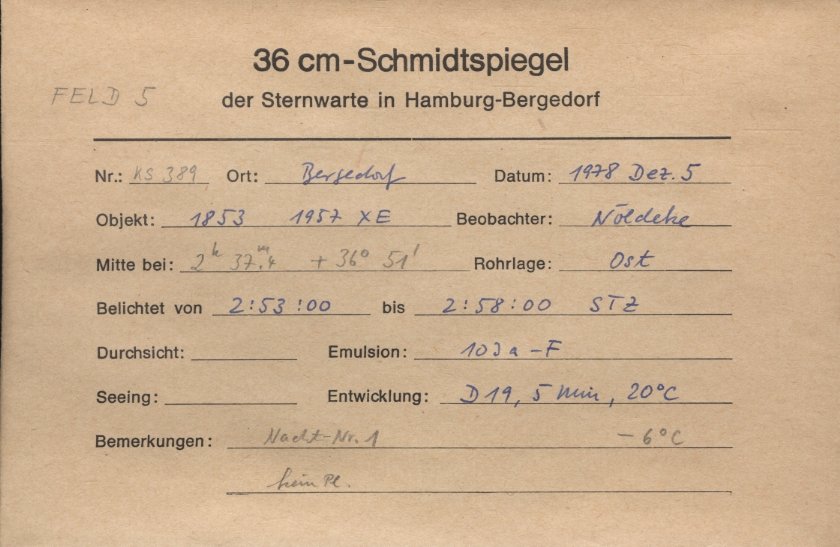 36 cm-Schmidtspiegel
FELD 5
der Sternwarte in Hamburg-Bergedorf
Nr.: KS 389 Ort: Bergedorf Datum: 1978 Dez. 5
Objekt: 1853 1957 XE Beobachter: Nöldeke
Mitte bei: 2h 37m.4 + 36° 51' Rohrlage: Ost
Belichtet von 2:53:00 bis 2:58:00 STZ
Durchsicht: Emulsion: 103a-F
Seeing: Entwicklung: D19, 5 Min, 20°C
Bemerkungen: Nacht-Nr. 1 -6°C
kein Pl.